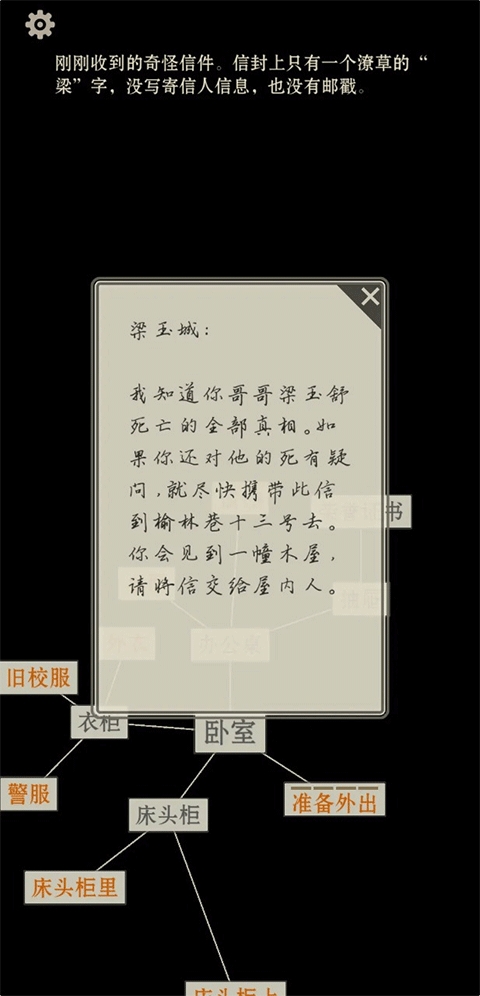 刚刚收到的奇怪信件。信封上只有一个潦草的“
梁”字，没写寄信人信息，也没有邮戳。
梁玉城：
我知道你哥哥梁玉舒
死亡的全部真相。如
果你还对他的死有疑
问，就尽快携带此信
到榆林巷十三号去。
你会见到一幢木屋，
请将信交给屋内人。
书
外衣
办公桌
抽屉
旧校服
衣柜
卧室
警服
床头柜
准备外出
床头柜里
床头柜上